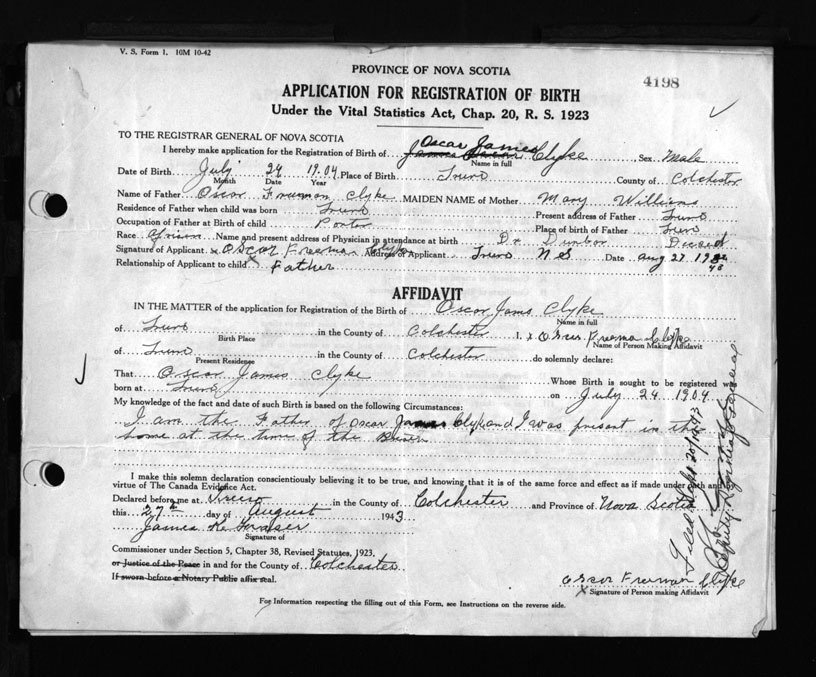 V. S. Form 1. 10M 10-42
PROVINCE OF NOVA SCOTIA
4198
APPLICATION FOR REGISTRATION OF BIRTH
Under the Vital Statistics Act, Chap. 20, R. S. 1923
TO THE REGISTRAR GENERAL OF NOVA SCOTIA
Oscar James
I hereby make application for the Registration of Birth of James Oscar Clyke Sex Male
Name in full
Date of Birth July 24 1904 Place of Birth Truro County of Colchester
Month Date Year
Name of Father Oscar Freeman Clyke MAIDEN NAME of Mother Mary Williams
Residence of Father when child was born Truro Present address of Father Truro
Occupation of Father at Birth of child Porter Place of birth of Father Truro
Race African Name and present address of Physician in attendance at birth Dr Dunbar Decesd
Signature of Applicant x Oscar Freeman Clyke Address of Applicant Truro N S Date Aug 27 19
43
Relationship of Applicant to child x Father
AFFIDAVIT
IN THE MATTER of the application for Registration of the Birth of Oscar Jams Clyke
Name in full
of Truro in the County of Colchester I, x Oscar Freeman Clyke
Birth Place Name of Person Making Affidavit
of Truro in the County of Colchester do solemnly declare:
Present Residence
That Oscar James Clyke Whose Birth is sought to be registered was
born at Truro on July 24 1904
My knowledge of the fact and date of such Birth is based on the following Circumstances:
I am the Father of Oscar James Clyke and I was present in the
home at the time of the
I make this solemn declaration conscientiously believing it to be true, and knowing that it is of the same force and effect as if made under oath and
virtue of The Canada Evidence Act.
Declared before me at Truro in the County of Colchester and Province of Nova Scotia
this 27th day of August 1943
James K. Fraser
Signature of
Commissioner under Section 5, Chapter 38, Revised Statutes, 1923.
or Justice of the Peace in and for the County of Colchester
If sworn before a Notary Public affix seal.
Oscar Freeman Clyke
x Signature of Person making Affidavit
For Information respecting the filling out of this Form, see Instructions on the reverse side.
Filed Sept 20/1943
Deputy Registrar General